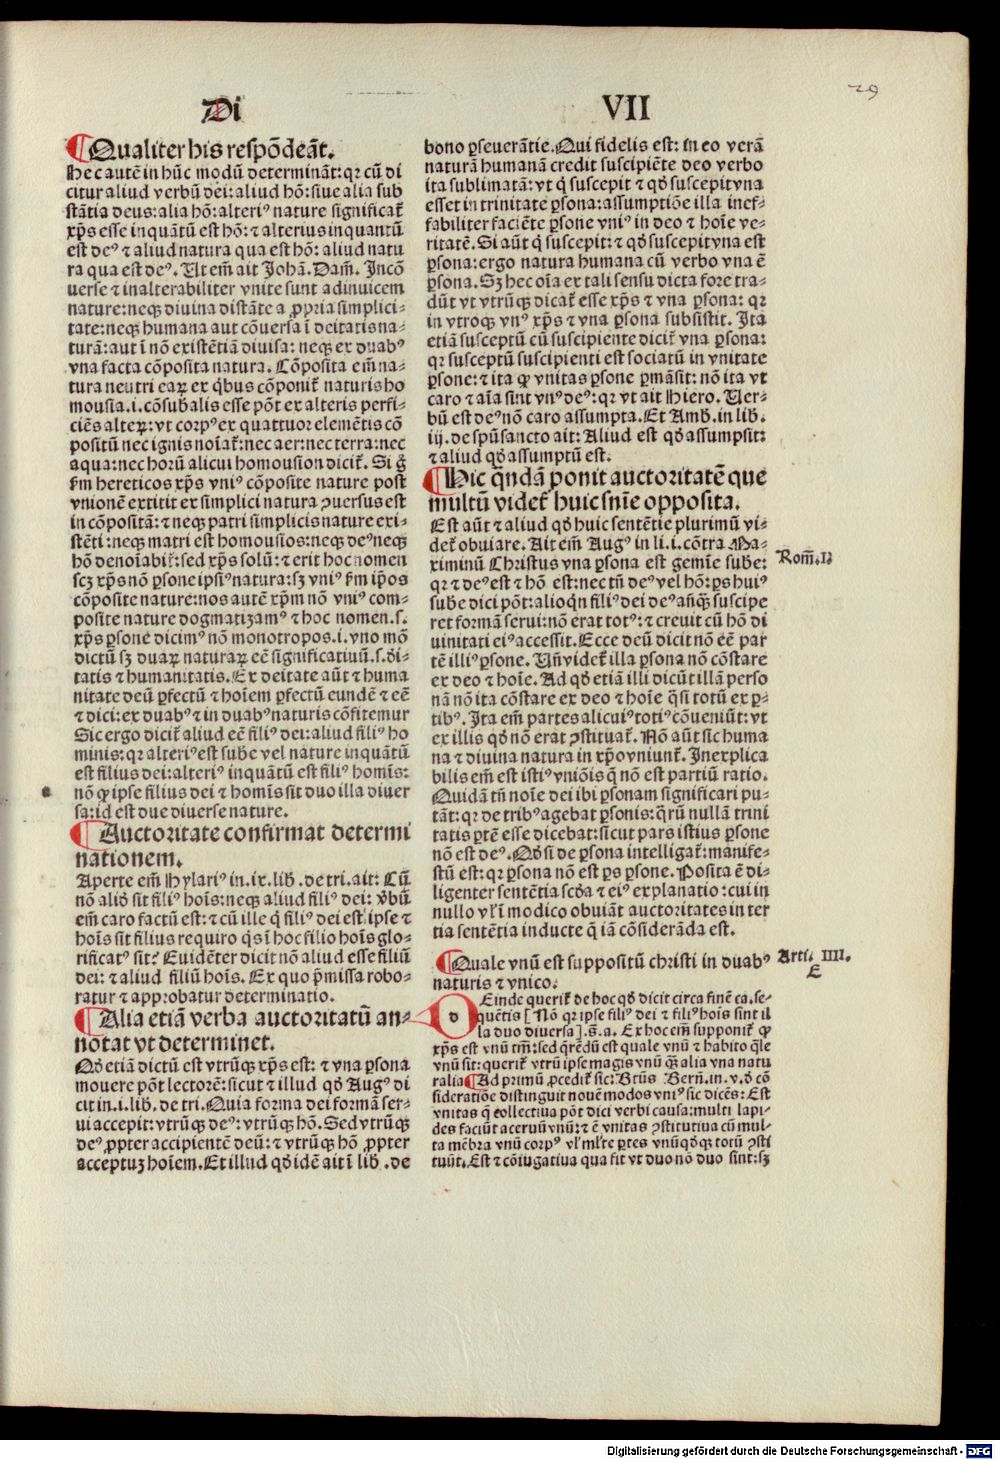 29
Di
VII
¶Qualiter his respōdeāt.
Hec autē in hūc modū determināt: qꝛ cū di
citur aliud verbū dei: aliud hō: siue alia sub
stātia deus: alia hō: alteriꝰ nature significat᷑
xp̄s esse inquātū est hō: ⁊ alterius inquantū
est deꝰ ⁊ aliud natura qua est hō: aliud natu
ra qua est deꝰ. Ut em̄ ait Johā. Dam̄. Incō
uerse ⁊ inalterabiliter vnite sunt adinuicem
nature: neqꝫ diuina distāte a ꝓpria simplici-
tate: neqꝫ humana aut cōuersa ī deitatis na-
turā: aut ī nō existētiā diuisa: neqꝫ ex duabꝰ
vna facta cōposita natura. Cōposita em̄ na-
tura neutri eaꝝ ex q̇bus cōponit᷑ naturis ho
mousia .i. cōsubālis esse pōt ex alteris perfi-
ciēs alteꝝ: vt corpꝰ ex quattuor elemētis cō
positū nec ignis noīat᷑: nec aer: nec terra: nec
aqua: nec horū alicui homousion dicit᷑. Si g̊
ẜm hereticos xp̄s vniꝰ cōposite nature post
vnionē extitit ex simplici natura ꝯuersus est
in cōpositā: ⁊ neqꝫ patri simplicis nature exi-
stēti: neqꝫ matri est homousios: neqꝫ deꝰ neqꝫ
hō denoīabit᷑: sed xp̄s solū: ⁊ erit hoc nomen
scꝫ xp̄s nō ꝑsone ipsiꝰ natura: sꝫ vniꝰ ẜm ip̄os
cōposite nature: nos autē xp̄m nō vniꝰ com-
posite nature dogmatizamꝰ ⁊ hoc nomen .s.
xp̄s ꝑsone dicimꝰ nō monotropos .i. vno mō
dictū sꝫ duaꝝ naturaꝝ eē significatiuū .s. di-
tatis ⁊ humanitatis. Ex deitate aūt ⁊ huma
nitate deū ꝑfectū ⁊ hoīem ꝑfectū eundē ⁊ eē
⁊ dici: ex duabꝰ ⁊ in duabꝰ naturis cōfitemur
Sic ergo dicit᷑ aliud eē filiꝰ dei: aliud filiꝰ ho
minis: qꝛ alteriꝰ est sub̄e vel nature inquātū
est filius dei: alteriꝰ inquātū est filiꝰ homīs:
nō ꝙ ipse filius dei ⁊ homīs sit duo illa diuer
sa: id est due diuerse nature.
¶Auctoritate confirmat determi
nationem.
Aperte em̄ Hylariꝰ in .ix. lib. de tri. ait: Cū
nō aliꝰ sit filiꝰ hoīs: neqꝫ aliud filiꝰ dei: v̄bū
em̄ caro factū est: ⁊ cū ille q̇ filiꝰ dei est ipse ⁊
hoīs sit filius requiro q̇s ī hoc filio hoīs glo-
rificatꝰ sit? Euidēter dicit nō aliud esse filiū
dei: ⁊ aliud filiū hoīs. Ex quo p̄missa robo-
ratur ⁊ approbatur determinatio.
¶Alia etiā verba auctoritatū an-
notat vt determinet.
Qđ etiā dictū est vtrūqꝫ xp̄s est: ⁊ vna ꝑsona
mouere pōt lectorē: sicut ⁊ illud qđ Augꝰ di
cit in .i. lib. de tri. Quia forma dei formā ser-
ui accepit: vtrūqꝫ deꝰ: vtrūqꝫ hō. Sed vtrūqꝫ
deꝰ ꝓpter accipientē deū: ⁊ vtrūqꝫ hō ꝓpter
acceptuꝫ hoīem. Et illud qđ idē ait ī lib. de
bono ꝑseuerātie. Qui fidelis est: in eo verā
naturā humanā credit suscipiēte deo verbo
ita sublimatā: vt q̇ suscepit ⁊ qđ suscepit vna
esset in trinitate ꝑsona: assumptiōe illa inef-
fabiliter faciēte ꝑsone vniꝰ in deo ⁊ hoīe ve-
ritatē. Si aūt q̇ suscepit: ⁊ qđ suscepit vna est
ꝑsona: ergo natura humana cū verbo vna ē
ꝑsona. Sꝫ hec oīa ex tali sensu dicta fore tra-
dūt vt vtrūqꝫ dicat᷑ esse xp̄s ⁊ vna ꝑsona: qꝛ
in vtroqꝫ vnꝰ xp̄s ⁊ vna ꝑsona subsistit. Ita
etiā susceptū cū suscipiente dicit᷑ vna ꝑsona:
qꝛ susceptū suscipienti est sociatū in vnitate
ꝑsone: ⁊ ita ꝙ vnitas ꝑsone ꝑmāsit: nō ita vt
caro ⁊ aīa sint vnꝰ deꝰ: qꝛ vt ait Hiero. Uer-
bū est deꝰ nō caro assumpta. Et Amb. in lib.
iij. de spū sancto ait: Aliud est qđ assumpsit:
⁊ aliud qđ assumptū est.
¶Hic q̄ndā ponit auctoritatē que
multū videt᷑ huic snīe opposita.
Est aūt ⁊ aliud qđ huic sentētie plurimū vi-
det᷑ obuiare. Ait em̄ Augꝰ in li. i. cōtra Ma-
ximinū Christus vna ꝑsona est gemīe sub̄e:
qꝛ ⁊ deꝰ est ⁊ hō est: nec tū deꝰ vel hō: ꝑs huiꝰ
sub̄e dici pōt: alioq̇n filiꝰ dei deꝰ añq̄ꝫ suscipe
ret formā serui: nō erat totꝰ: ⁊ creuit cū hō di
uinitati eiꝰ accessit. Ecce deū dicit nō eē par
tē illiꝰ ꝑsone. Uñ videt᷑ illa ꝑsona nō cōstare
ex deo ⁊ hoīe. Ad qđ etiā illi dicūt illā perso
nā nō ita cōstare ex deo ⁊ hoīe q̄si totū ex ꝑ-
tibꝰ. Ita em̄ partes alicuiꝰ totiꝰ cōueniūt: vt
ex illis qđ nō erat ꝯstituat᷑. Nō aūt sic huma
na ⁊ diuina natura in xp̄o vniunt᷑. Inexplica
bilis em̄ est istiꝰ vniōis q̄ nō est partiū ratio.
Quidā tñ noīe dei ibi ꝑsonam significari pu-
tāt: qꝛ de tribꝰ agebat ꝑsonis: q̄rū nullā trini
tatis ꝑtē esse dicebat: sicut pars istius ꝑsone
nō est deꝰ. Qđ si de ꝑsona intelligat᷑: manife-
stū est: qꝛ ꝑsona nō est ꝑs ꝑsone. Posita ē di-
ligenter sentētia scđa ⁊ eiꝰ explanatio: cui in
nullo vl̄ ī modico obuiāt auctoritates in ter
tia sentētia inducte q̄ iā cōsiderāda est.
Rom̄. I.
¶Quale vnū est suppositū christi in duabꝰ
naturis ⁊ vnico.
Arti. IIII.
E
DEinde querit᷑ de hoc qđ dicit circa finē ca. se-
quētis [Nō qꝛ ipse filiꝰ dei ⁊ filiꝰ hoīs sint il
la duo diuersa] .§. a. Ex hoc em̄ supponit᷑ ꝙ
xp̄s est vnū tm̄: sed q̄rēdū est quale vnū ⁊ habito q̄le
vnū sit: querit᷑ vtrū ipse magis vnū q̄ꝫ alia vna natu
ralia ¶Ad primū ꝓcedit᷑ sic: Btūs Bern̄. in .v. đ cō
sideratiōe distinguit nouē modos vniꝰ sic dicēs: Est
vnitas q̄ collectiua pōt dici verbi causa: multi lapi-
des faciūt aceruū vnū: ⁊ ē vnitas ꝯstitutiua cū mul-
ta mēbra vnū corpꝰ vl̄ ml̄te ꝑtes vnūqđqꝫ totū ꝯsti
tuūt. Est ⁊ cōiugatiua qua fit vt duo nō duo sint: sꝫ
Digitalisierung gefördert durch die Deutsche Forschungsgemeinschaft - DFG